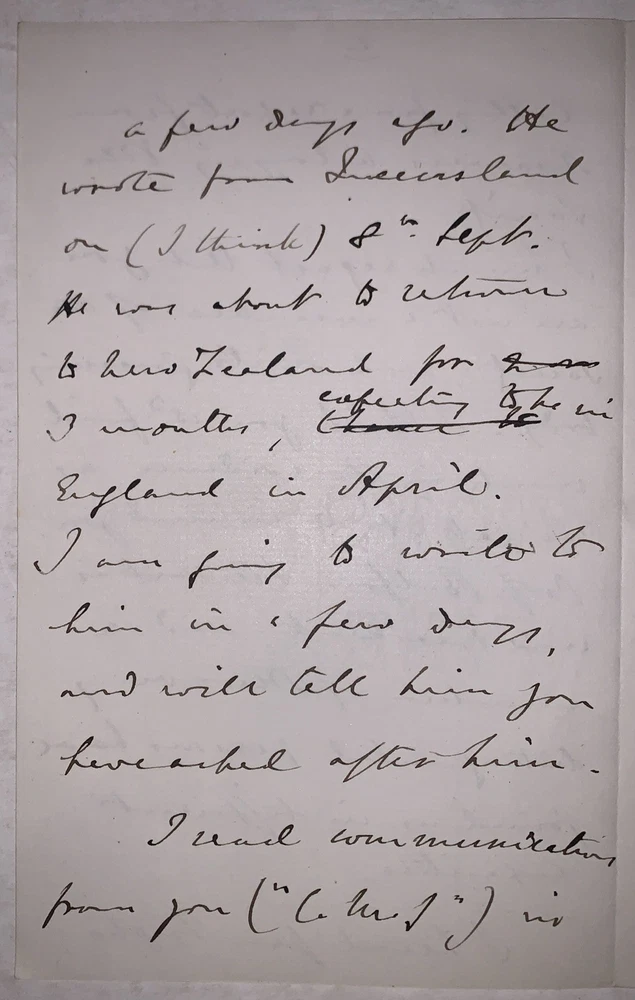 a few days ago. He
wrote from Queensland
on (I think) 8th Sept.
He was about to return
to New Zealand for
3 months, expecting to be in
England in April.
I am going to write to
him in a few days,
and will tell him you
have asked after him.
I read communications
from you (" ") in